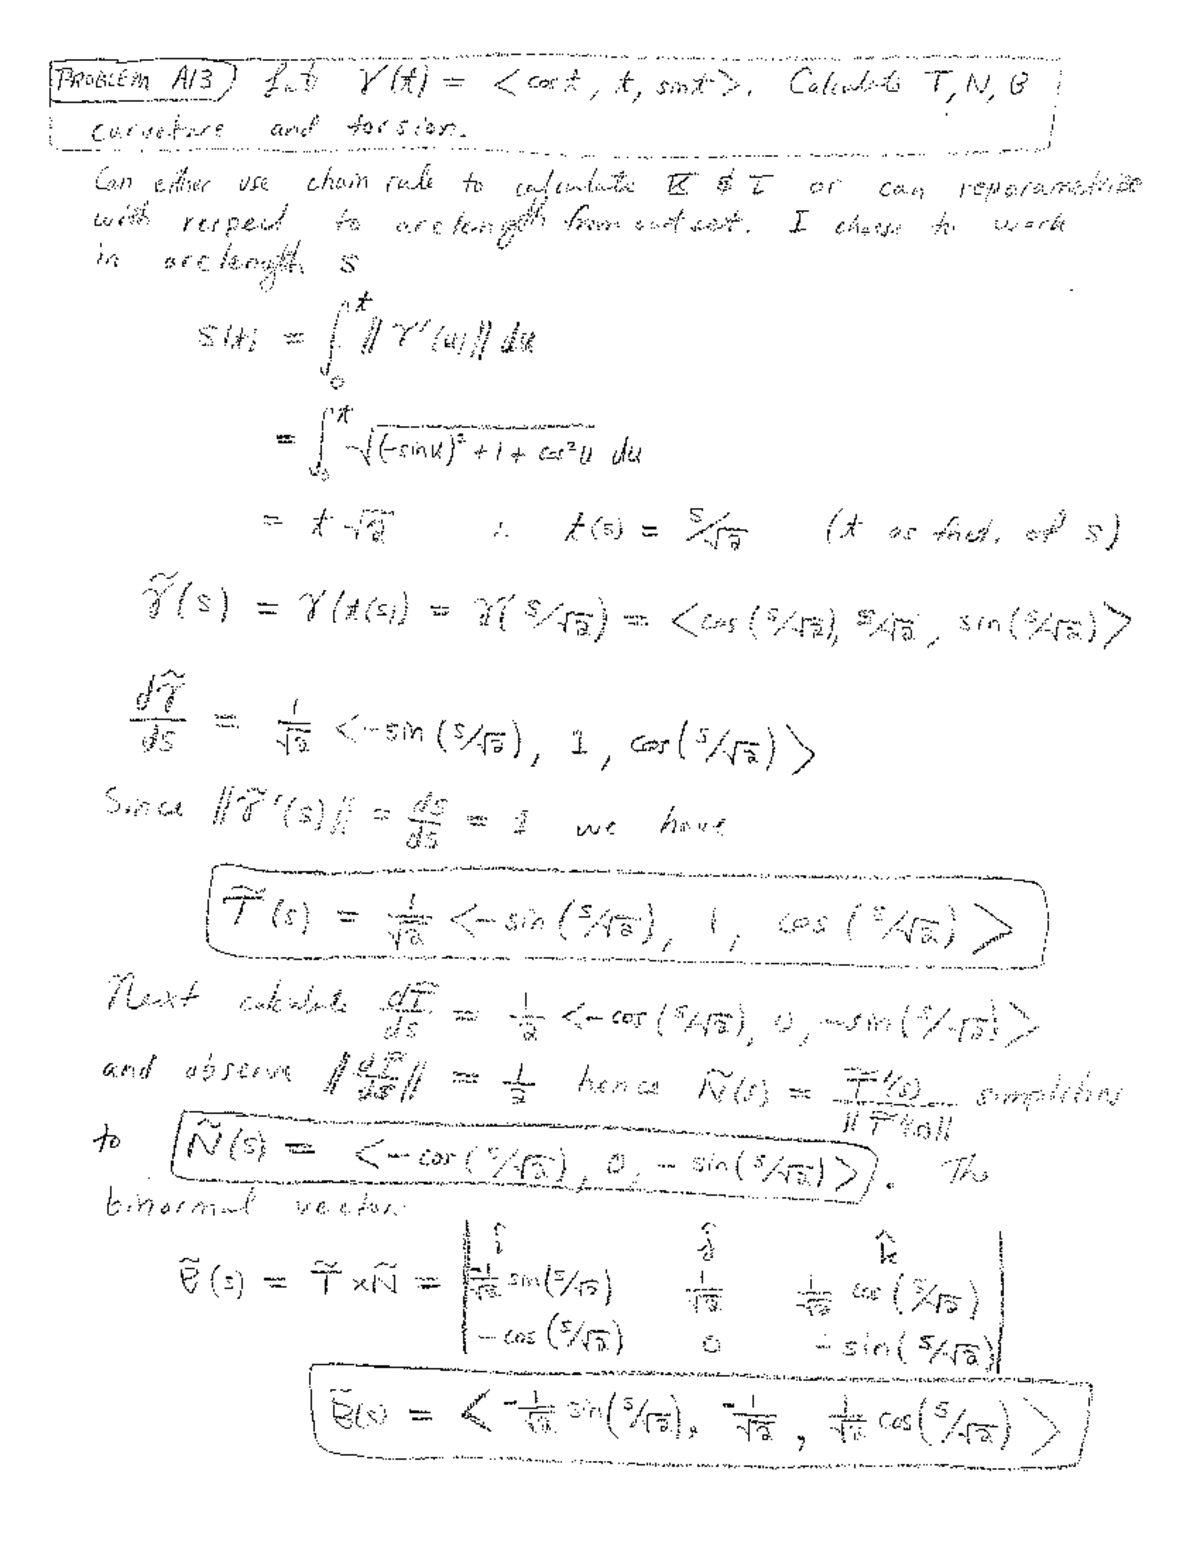 PROBLEM A13) Let γ(t) = <cos t, t, sin t>. Calculate T, N, B
curvature and torsion.
Can either use chain rule to calculate K & τ or can reparametrize
with respect to arclength from outset. I choose to work
in arclength s
s(t) = ∫₀ᵗ ‖γ'(u)‖ du
= ∫₀ᵗ √((-sin u)² + 1 + cos² u) du
= t√2 ∴ t(s) = s/√2 (t as fnct. of s)
γ̃(s) = γ(t(s)) = γ(s/√2) = <cos(s/√2), s/√2, sin(s/√2)>
dγ̃/ds = 1/√2 <-sin(s/√2), 1, cos(s/√2)>
Since ‖γ̃'(s)‖ = ds/ds = 1 we have
T̃(s) = 1/√2 <-sin(s/√2), 1, cos(s/√2)>
Next calculate dT̃/ds = 1/2 <-cos(s/√2), 0, -sin(s/√2)>
and observe ‖dT̃/ds‖ = 1/2 hence Ñ(s) = T̃'(s)/‖T̃'(s)‖ simplifies
to Ñ(s) = <-cos(s/√2), 0, -sin(s/√2)>. The
binormal vector
B̃(s) = T̃ x Ñ = | î ĵ k̂
-1/√2 sin(s/√2) 1/√2 1/√2 cos(s/√2)
-cos(s/√2) 0 -sin(s/√2) |
B̃(s) = <-1/√2 sin(s/√2), -1/√2, 1/√2 cos(s/√2)>